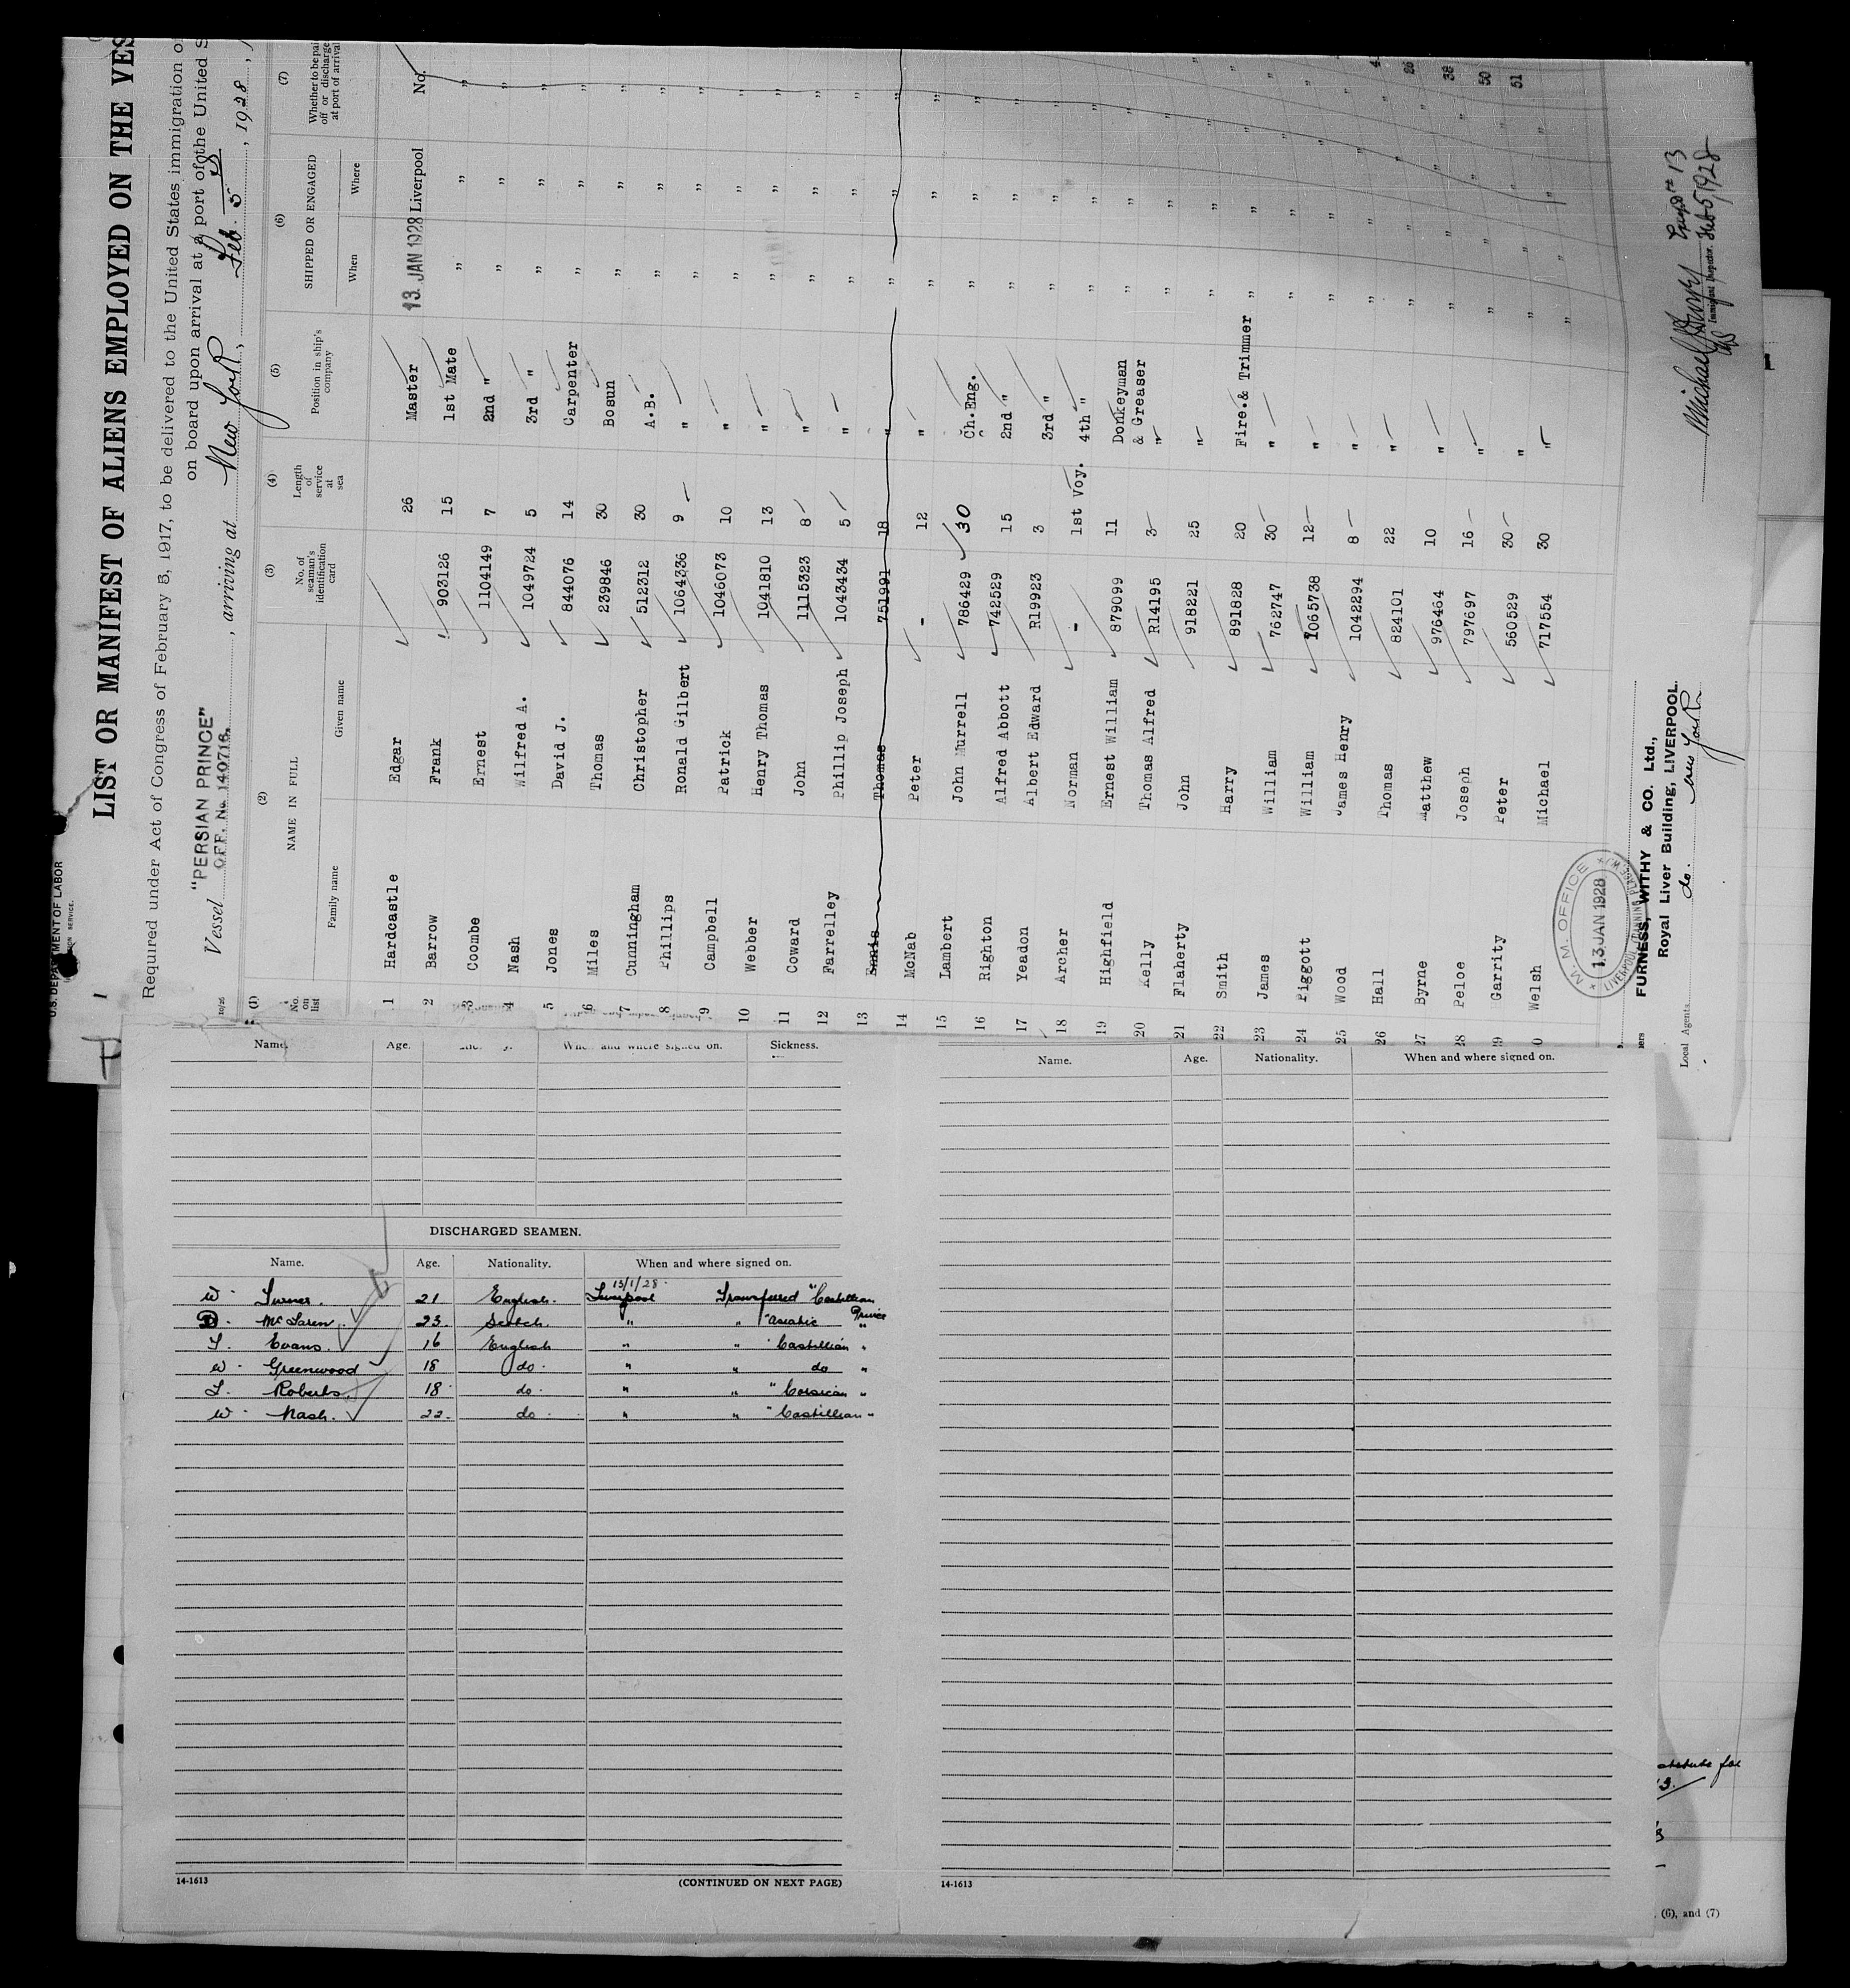 U.S. DEPARTMENT OF LABOR
SERVICE.
LIST OR MANIFEST OF ALIENS EMPLOYED ON THE
Required under Act of Congress of February 5, 1917, to be delivered to the United States immigration
on board upon arrival at a port of the United
Vessel "PERSIAN PRINCE" OFF. No. 140716, arriving at New York, Feb. 5, 1928,
(1) (2) (3) (4) (5) (6) (7)
No. on list NAME IN FULL No. of seaman's identification card Length of service at sea Position in ship's company SHIPPED OR ENGAGED Whether to be paid off or discharged at port of arrival
Family name Given name When Where
1 Hardcastle Edgar 26 Master 13 JAN 1928 Liverpool No.
2 Barrow Frank 903126 15 1st Mate " " "
3 Coombe Ernest 1104149 7 2nd " " " "
4 Nash Wilfred A. 1049724 5 3rd " " " "
5 Jones David J. 844076 14 Carpenter " " "
6 Miles Thomas 239846 30 Bosun " " "
7 Cunningham Christopher 512312 30 A.B. " " "
8 Phillips Ronald Gilbert 1064336 9 " " " "
9 Campbell Patrick 1046073 10 " " " "
10 Webber Henry Thomas 1041810 13 " " " "
11 Coward John 1115323 8 " " " "
12 Farrelley Phillip Joseph 1043434 5 " " " "
13 Ennis Thomas 751991 18 " " " "
14 McNab Peter - 12 " " " "
15 Lambert John Murrell 786429 30 Ch.Eng. " " "
16 Righton Alfred Abbott 742529 15 2nd " " " "
17 Yeadon Albert Edward R19923 3 3rd " " " "
18 Archer Norman - 1st Voy. 4th " " " "
19 Highfield Ernest William 879099 11 Donkeyman & Greaser " " "
20 Kelly Thomas Alfred R14195 3 " " " "
21 Flaherty John 918221 25 " " " "
22 Smith Harry 891828 20 Fire.& Trimmer " " "
23 James William 762747 30 " " " "
24 Piggott William 1065738 12 " " " "
25 Wood James Henry 1042294 8 " " " "
26 Hall Thomas 824101 22 " " " "
27 Byrne Matthew 976464 10 " " " "
28 Peloe Joseph 797697 16 " " " "
29 Garrity Peter 560529 30 " " " "
30 Welsh Michael 717554 30 " " " "
4
26
38
50
51
M. M. OFFICE
13 JAN 1928
LIVERPOOL
FURNESS, WITHY & CO. Ltd.,
Royal Liver Building, LIVERPOOL.
Local Agents do. New York
Immigrant Inspector.
Feb 5/1928
Name. Age. When and where signed on. Sickness.
DISCHARGED SEAMEN.
Name. Age. Nationality. When and where signed on.
13/1/28
W. Turner. 21 English. Liverpool Transferred "Castillian Prince
D. McLaren. 23. Scotch. " " "Asiatic "
T. Evans. 16 English " "Castillian "
W. Greenwood 18 do. " " do "
T. Roberts. 18 do. " " "Corsican "
W. Nash. 22. do. " " "Castillian "
14-1613 (CONTINUED ON NEXT PAGE)
Name. Age. Nationality. When and where signed on.
14-1613
(6), and (7)